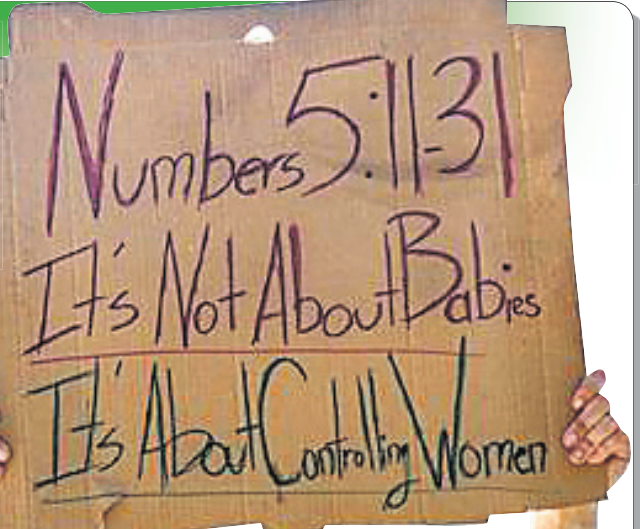 Numbers 5:11-31
It's Not About Babies
It's About Controlling Women